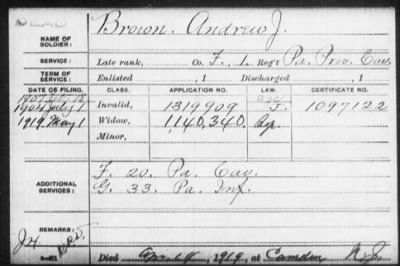 DEAD
NAME OF SOLDIER: Brown, Andrew J.
SERVICE: Late rank, Co. F, 1 Reg't Pa. Prov. Cav.
TERM OF SERVICE: Enlisted , 1 Discharged , 1
DATE OF FILING. CLASS. APPLICATION NO. LAW. CERTIFICATE NO.
1907
1904 July 1 Invalid, 1319909 F. 1097122
1919 May 1 Widow, 1,140,340.
Minor,
ADDITIONAL SERVICES: F. 20. Pa. Cav.
G. 33. Pa. Inf.
REMARKS:
Died 1919, at Camden N.J.